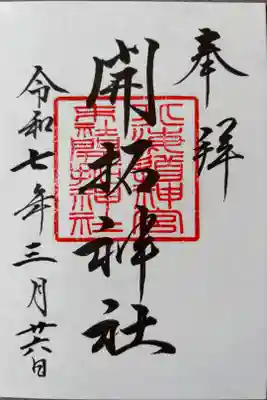 奉拝
開拓神社
令和七年三月廿六日
北海道神宮
末社開拓神社